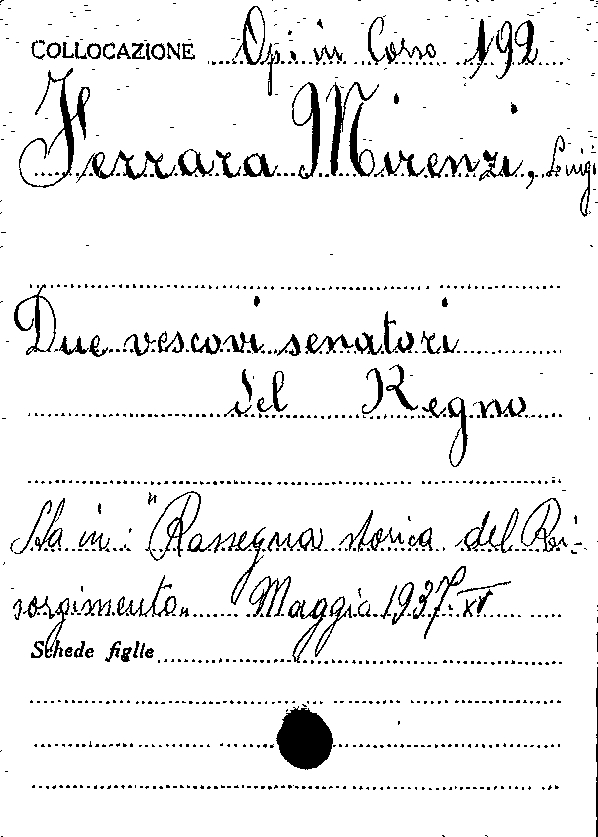 COLLOCAZIONE Op. in Corso 192
Ferrara Mirenzi, Luigi
Due vescovi senatori
del Regno
Sta in: "Rassegna storica del Ri-
sorgimento„ Maggio 1937. XV
Schede figlie